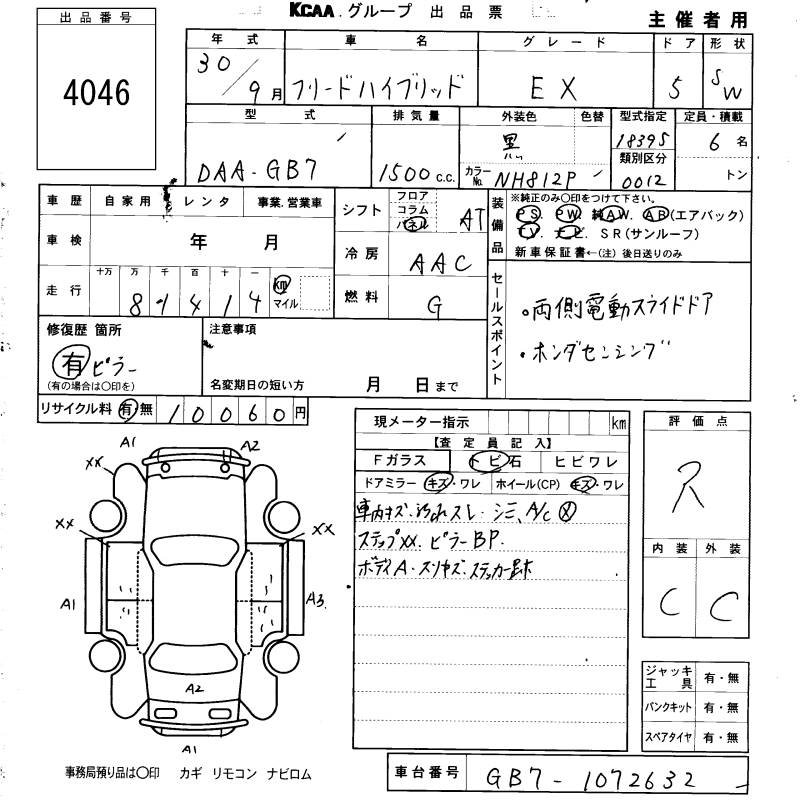 KCAA グループ 出品票
主催者用
出品番号
4046
年式 車名 グレード ドア 形状
30/9月 フリードハイブリッド EX 5 SW
型式 排気量 外装色 色替 型式指定 定員・積載
DAA-GB7 1500 c.c. 黒 18395 6名
類別区分
カラーNo. NH812P 0012 トン
車歴 自家用 レンタ 事業.営業車
シフト フロア コラム パネル AT
装備品
※純正のみ○印をつけて下さい。
PS. PW. 純AW. AB(エアバック)
TV. ナビ. SR(サンルーフ)
新車保証書←(注) 後日送りのみ
車検 年 月
冷房 AAC
走行 十万 万 千 百 十 一
8 1 4 1 4 km マイル
燃料 G
セールスポイント
・両側電動スライドドア
・ホンダセンシング
修復歴 箇所
有 ピラー
(有の場合は○印を)
注意事項
名変期日の短い方 月 日まで
リサイクル料 有・無 10060円
現メーター指示 km
【査定員記入】
Fガラス トビ石 ヒビワレ
ドアミラー キズ・ワレ ホイール(CP) キズ・ワレ
車内キズ・汚れスレ・シミ、A/C ×
ステップXX. ピラーBP.
ボディA・スリキズ・ステッカー跡
評価点
R
内装 外装
C C
A1 A2
XX
XX XX
A1 A3
A2
A1
ジャッキ工具 有・無
パンクキット 有・無
スペアタイヤ 有・無
事務局預り品は○印 カギ リモコン ナビロム
車台番号 GB7-1072632